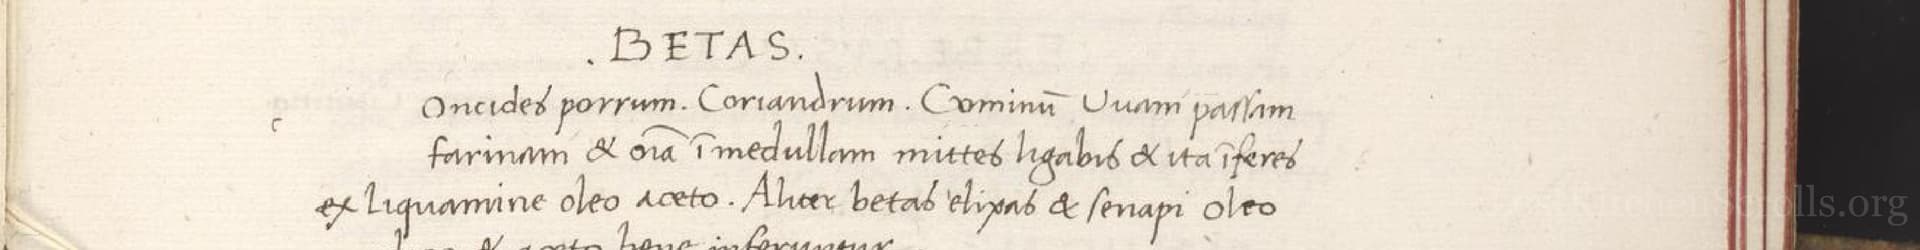 . BETAS.
c
Oncides porrum. Coriandrum. Cominū Uvam passam
farinam & oīa ī medullam mittes ligabis & ita īferes
ex liquamine oleo aceto. Aliter betas elixas & senapi oleo
& aceto bene inferuntur